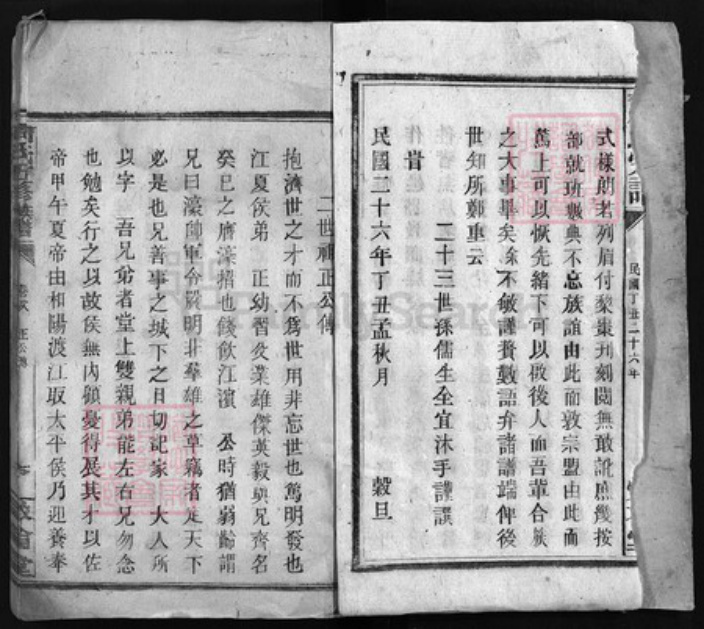 式樣朗若列眉付棃棗刊刻閱無敢訛庶幾按
部就班數典不忘族誼由此而敦宗盟由此而
篤上可以恢先緒下可以啟後人而吾輩合族
之大事畢矣餘不敏謹贅數語弁諸譜端俾後
世知所鄭重云
旹
二十三世孫儒生全宜沐手謹譔
民國二十六年丁丑孟秋月 穀旦
民國丁丑二十六年
二世祖正公傳
抱濟世之才而不爲世用非忘世也篤明發也
江夏侯弟 正幼習父業雄傑英毅與兄齊名
癸巳之膺濠招也餞飲江濱 公時猶弱齡謂
兄曰濠帥軍令嚴明非羣雄之草竊者定天下
必是也兄善事之城下之日切記家 大人所
以字 吾兄弟者堂上雙親弟能左右兄勿念
也勉矣行之以故侯無內顧憂得展其才以佐
帝甲午夏帝由和陽渡江取太平侯乃迎養奉
正公傳
FamilySearch